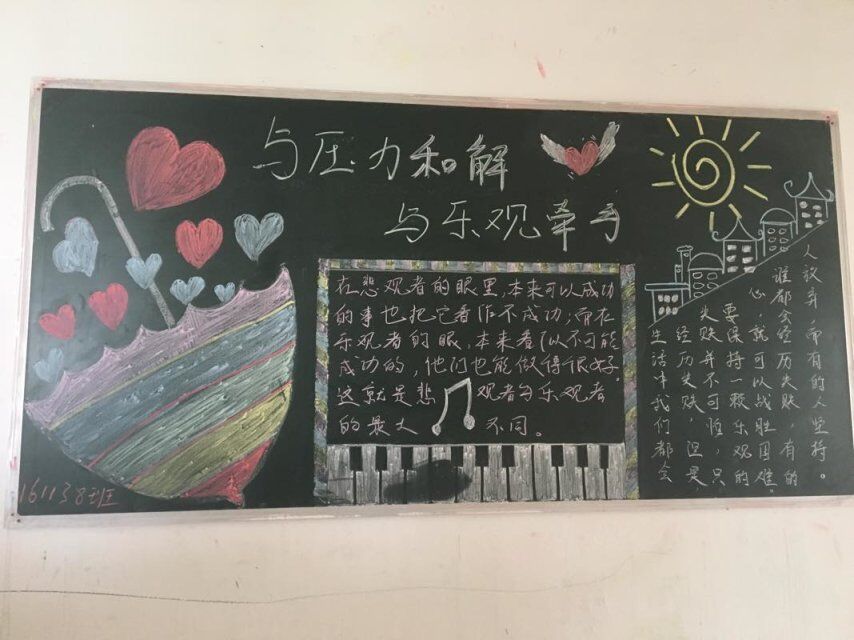 与压力和解
与乐观牵手
在悲观者的眼里,本来可以成功
的事也把它看作不成功;而在
乐观者的眼,本来看似不可能
成功的,他们也能做得很好.
这就是悲观者与乐观者
的最大不同。
生活中我们都会
经历失败,但是,
失败并不可怕,只
要保持一颗乐观的
心,就可以战胜困难.
谁都会经历失败,有的
人放弃,而有的人坚持。
161138班